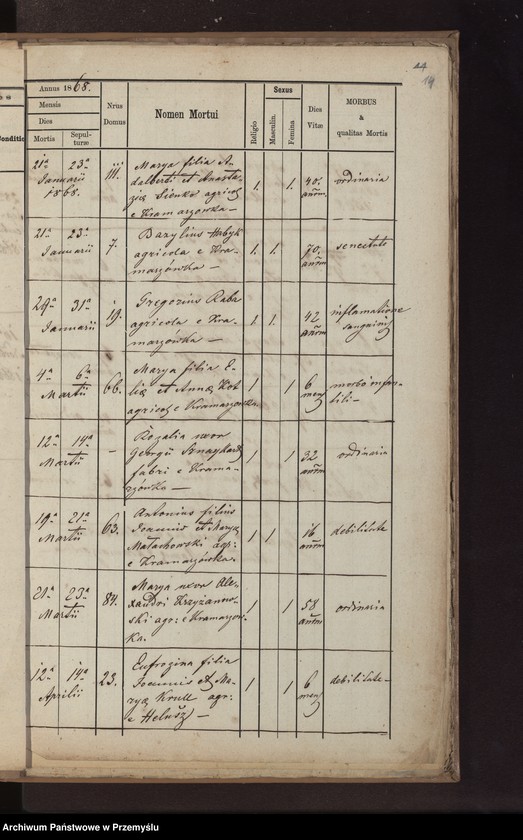 44
14
Annus 1868.
Mensis
Dies
Mortis Sepulturæ
Nrus Domus
Nomen Mortui
Religio
Sexus
Masculin.
Femina
Dies Vitæ
MORBUS
&
qualitas Mortis
Conditio
21a 23a
Januarii
1868.
111.
Marya filia A-
dalberti et Anasta-
agricolæ
e Kramarzówka —
1. 1.
40.
annorum
ordinaria
21a 23a
Januarii
7.
Bazylius
agricola e Kra-
marzówka —
1. 1.
70.
annorum
senectute
31a
Januarii
19.
Gregorius Raba
agricola e Kra-
marzówka —
1. 1.
42
annorum
inflamatione
sanguinis
4a 6a
Martii
66.
Marya filia E-
liæ et Annæ Kot
agricolæ e Kramarzówka
1 1
6
mens
morbo infan-
tili —
12a 14a
Martii
—
Rozalia uxor
Georgii
fabri e Krama-
rzówka —
1 1
32
annorum
ordinaria
19a 21a
Martii
63.
Antonius filius
Joannis et Maryæ
Małachowski agr:
e Kramarzówka.
1 1
16
annorum
debilitate
21a 23a
Martii
84.
Marya uxor Ale-
xandri Krzyżanow-
ski agr: e Kramarzów-
ka.
1 1
58
annorum
ordinaria
12a 14a
Aprilii
23.
Eufrozina filia
Joannis et Ma-
ryæ Krull agr:
e Helusz —
1 1
6
mens
debilitate —
Archiwum Państwowe w Przemyślu